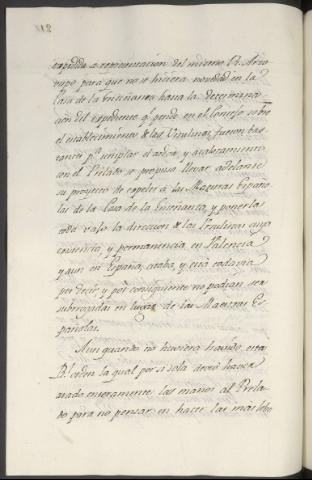 12
expedida a representacion del mismo Rd. Arzo
vispo para que no se hiciera novedad en la
Casa de la Enseñanza hasta la determina
cion del expediente q.e pende en el Consejo sobre
el establecimiento de las Ursulinas, fueron bas
tante p.a el ardor, y acaloramiento
con el Prelado se propuso llevar adelante
su proyecto de expeler á las Maestras Españo
las de la Casa de la Enseñanza, y ponerla
toda vajo la direccion de las Ursulinas cuya
existencia, y permanencia en Palencia
y aun en España, estaba, y está todavia
por decir, y por consiguiente no podian ser
subrogadas en lugar de las Maestras Es
pañolas.
Aun quando no huviera havido, esta
Rl. orden la qual por si sola devió haver
atado enteramente las manos al Prela
do para no pensar en hacer las mas leve